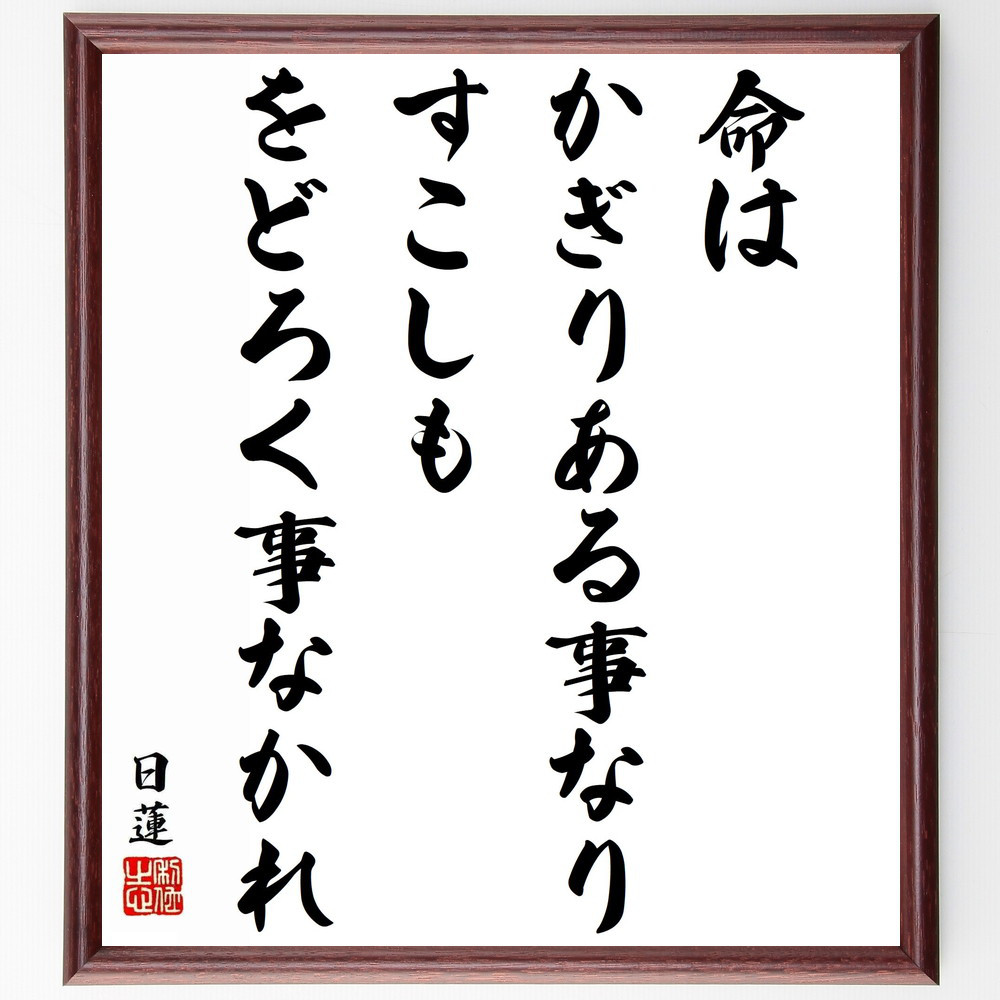 命は
かぎりある事なり
すこしも
をどろく事なかれ
日蓮